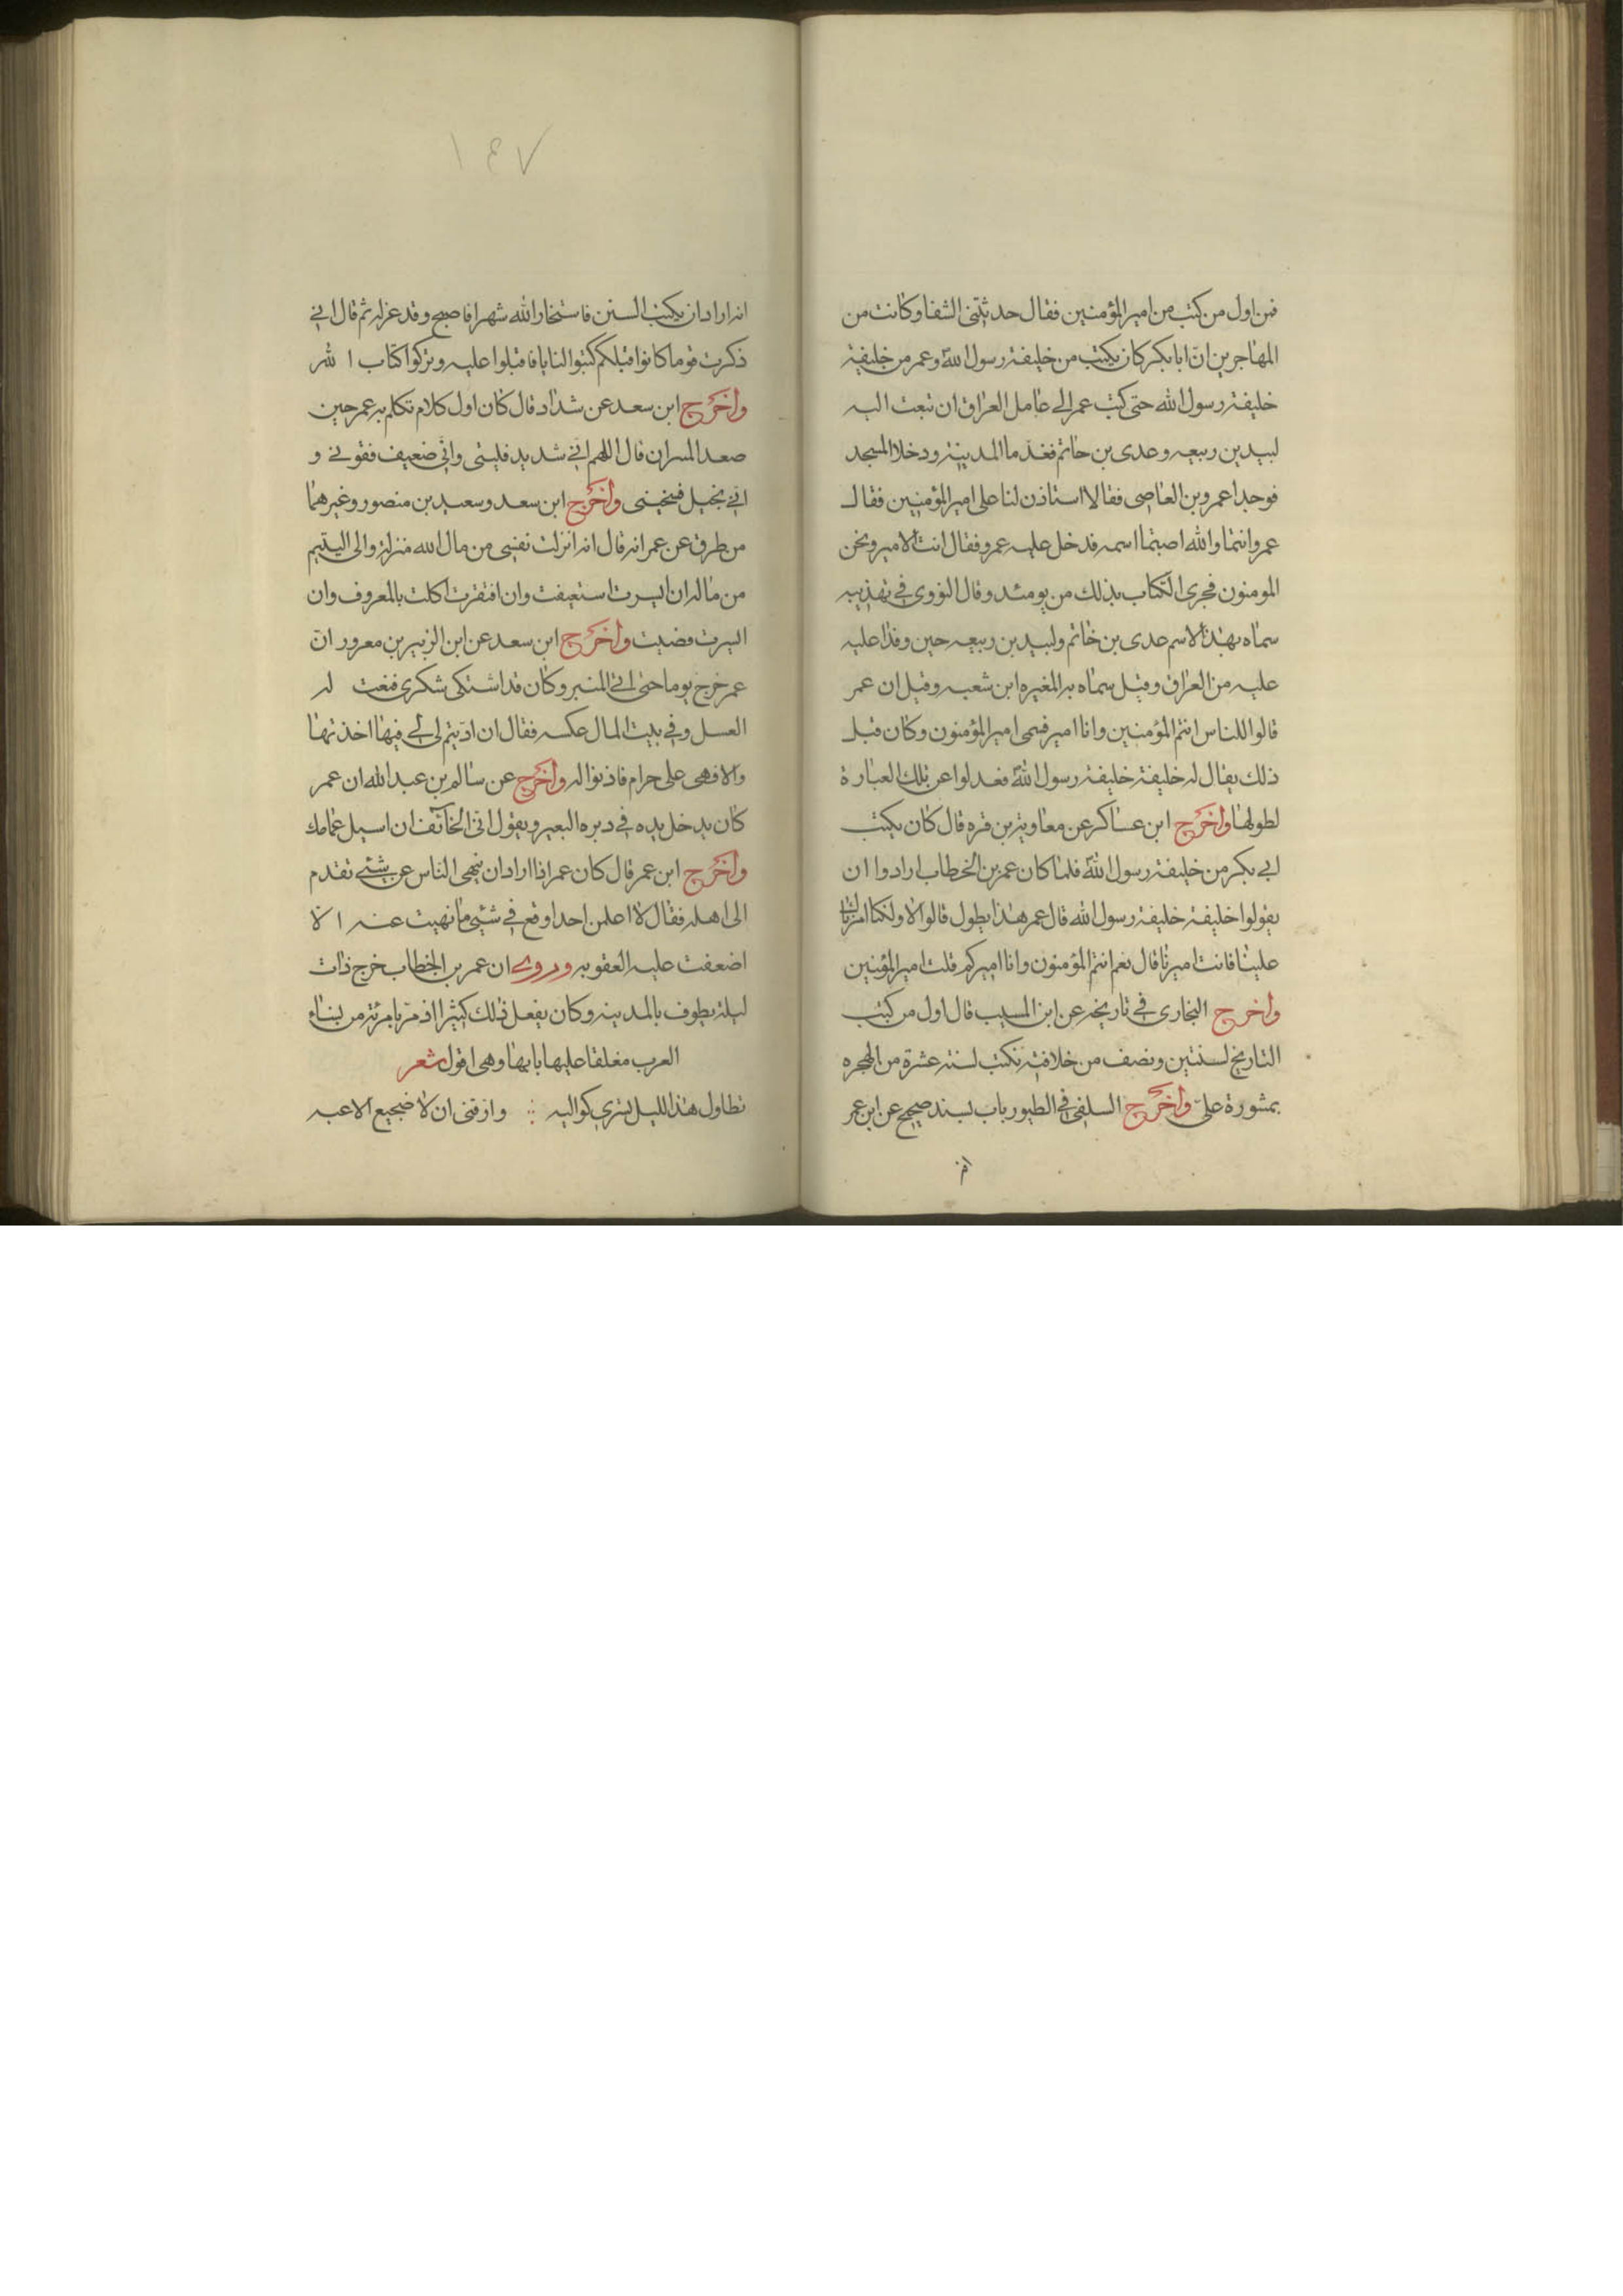 فمن اول من كتب من امير المؤمنين فقال حدثتنى الشفا وكانت من
المهاجرين ان ابا بكر كان يكتب من خليفة رسول الله وعمر من خليفة
خليفة رسول الله حتى كتب عمر الى عامل العراق ان تبعث اليه
لبيد بن ربيعه وعدى بن حاتم فقدما المدينة ودخلا المسجد
فوجدا عمرو بن العاصى فقالا استاذن لنا على امير المؤمنين فقال
عمرو انتما والله اصبتما اسمه فدخل عليه عمرو فقال انت الامير ونحن
المومنون فجرى الكتاب بذلك من يومئد وقال النووى فى تهذيبه
سماه بهذا الاسم عدى بن خاتم ولبيد بن ربيعه حين وفدا عليه
عليه من العراق وقيل سماه به المغيره ابن شعبه وقيل ان عمر
قالوا للناس انتم المؤمنين وانا امير فسمى امير المؤمنون وكان قبل
ذلك يقال له خليفة خليفة رسول الله فعدلوا عن تلك العبارة
لطولها واخرج ابن عساكر عن معاوية بن قره قال كان يكتب
ابى بكر من خليفة رسول الله فلما كان عمر بن الخطاب ارادوا ان
يقولوا خليفة خليفة رسول الله قال عمر هذا يطول قالوا لا ولكنا امرناك
علينا فانت اميرنا قال نعم انتم المؤمنون وانا اميركم قلت امير المؤمنين
واخرج البخارى فى تاريخه عن ابن المسيب قال اول من كتب
التاريخ لسنتين ونصف من خلافته نكتب لسنة عشرة من الهجره
بمشورة على واخرج السلفى فى الطيورياب بسند صحيح عن ابن عمر
١٤٧
انه اراد ان يكتب السنن فاستخار الله شهرا فاصبح وقد عزله ثم قال انى
ذكرت قوما كانوا قبلكم كتبوا فاقبلوا عليه وتركوا كتاب الله
واخرج ابن سعد عن شداد قال كان اول كلام تكلم به عمر حين
صعد ان قال اللهم انى شديد فلينى وانى ضعيف فقونى و
انى بخيل فسخينى واخرج ابن سعد وسعيد بن منصور وغيرهما
من طرق عن عمر انه قال انه انزلت نفسى من مال الله منزلة والى اليتيم
من ماله ان ايسرت استعيفت وان افتقرت اكلت بالمعروف وان
ايسرت قضيت واخرج ابن سعد عن ابن الزبير بن معرور ان
عمر خرج يوما حتى اتى المنبر وكان قد اشتكى شكرى فنعت له
العسل وفى بيت المال عكه فقال ان اذنتم لى فيها اخذتها
والا فهى على حرام فاذنوا له واخرج عن سالم بن عبد الله ان عمر
كان يدخل يده فى دبره البعير ويقول انى الخائف ان اسيل عمابك
واخرج ابن عمر قال كان عمر اذا اراد ان ينهى الناس عن شئى تقدم
الى اهله فقال لا اعلمن احدا وقع فى شئى ما نهيت عنه الا
اضعفت عليه العقوبه وروى ان عمر بن الخطاب خرج ذات
ليلة يطوف بالمدينه وكان يفعل ذلك كثيرا اذ مر بامرئة من نساء
العرب مغلقا عليها بابها وهى اقول شعر
تطاول هذا الليل تسرى كواليه وارقنى ان لا ضجيع الاعبه